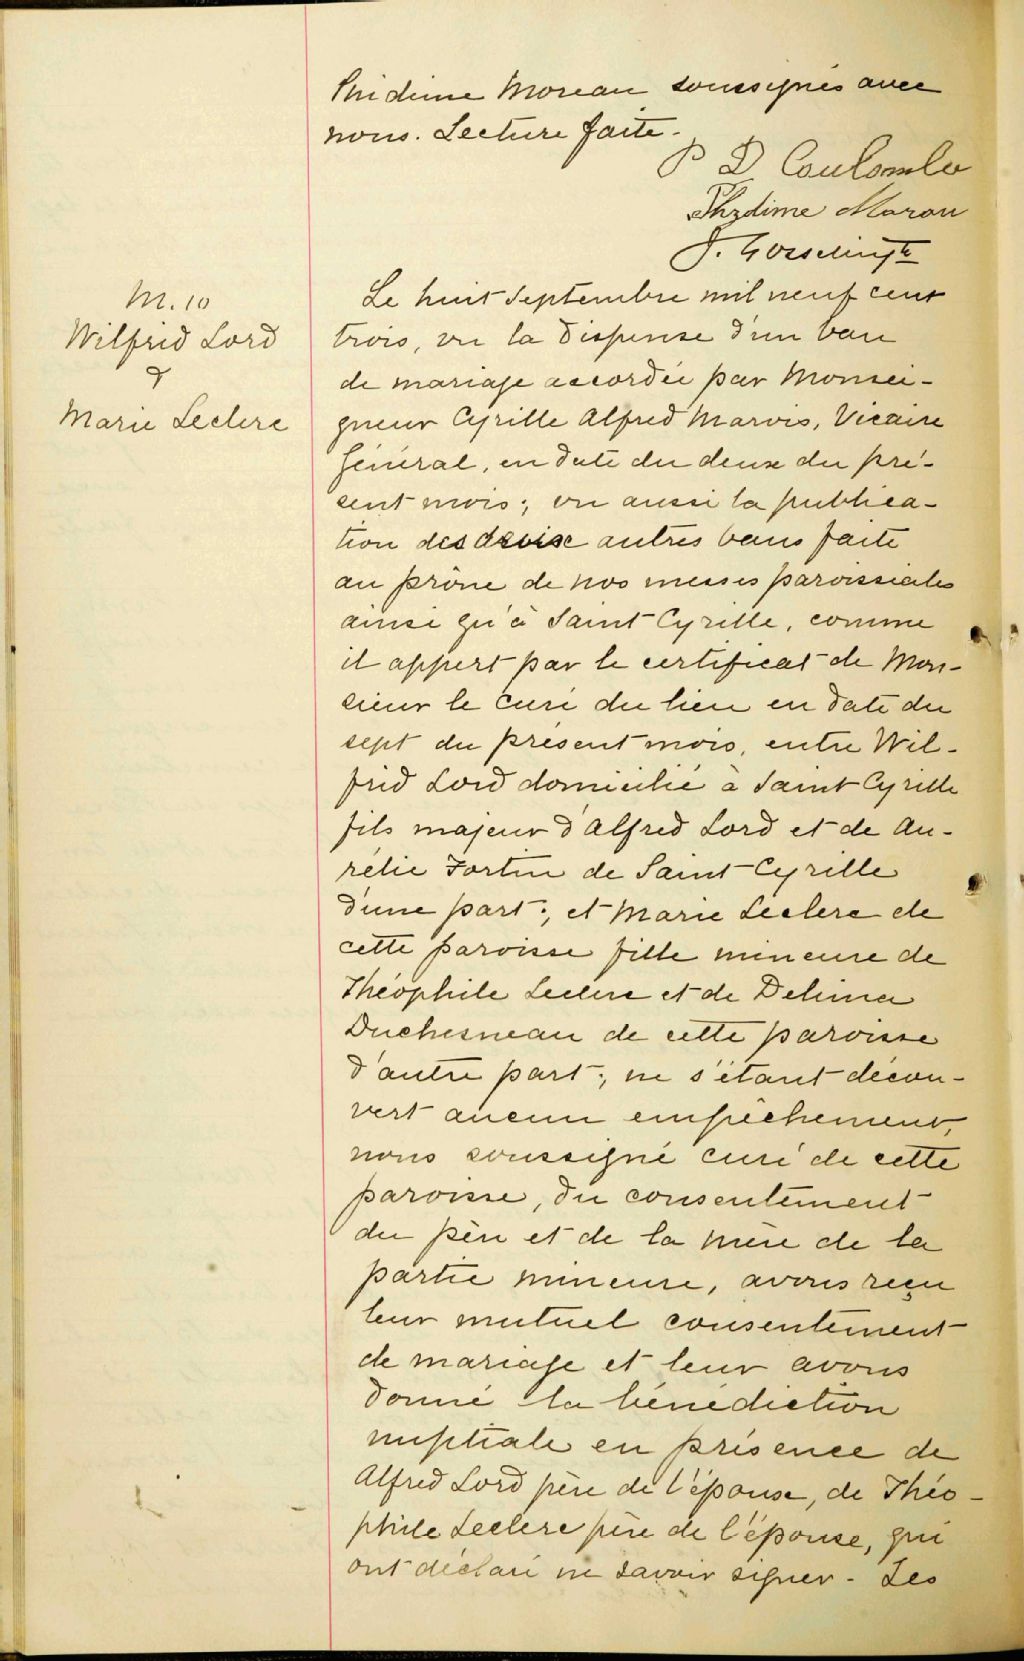 Phidime Moreau soussignés avec
nous. Lecture faite.
P D Coulombe
Phydime Moreau
J. Gosselin ptr
M. 10
Wilfrid Lord
&
Marie Leclerc
Le huit Septembre mil neuf cent
trois, vu la dispense d'un ban
de mariage accordée par Monsei-
gneur Cyrille Alfred Marois, Vicaire
Général, en date du deux du pré-
sent mois; vu aussi la publica-
tion des deux autres bans faite
au prône de nos messes paroissiales
ainsi qu'à Saint Cyrille, comme
il appert par le certificat de Mon-
sieur le Curé du lieu en date du
sept du présent mois, entre Wil-
frid Lord domicilié à Saint Cyrille
fils majeur d'Alfred Lord et de Au-
rélie Fortin de Saint-Cyrille
d'une part; et Marie Leclerc de
cette paroisse fille mineure de
Théophile Leclerc et de Delima
Duchesneau de cette paroisse
d'autre part; ne s'étant décou-
vert aucun empêchement,
nous soussigné curé de cette
paroisse, du consentement
du père et de la mère de la
partie mineure, avons reçu
leur mutuel consentement
de mariage et leur avons
donné la bénédiction
nuptiale en présence de
Alfred Lord père de l'époux, de Théo-
phile Leclerc père de l'épouse, qui
ont déclaré ne savoir signer - Les